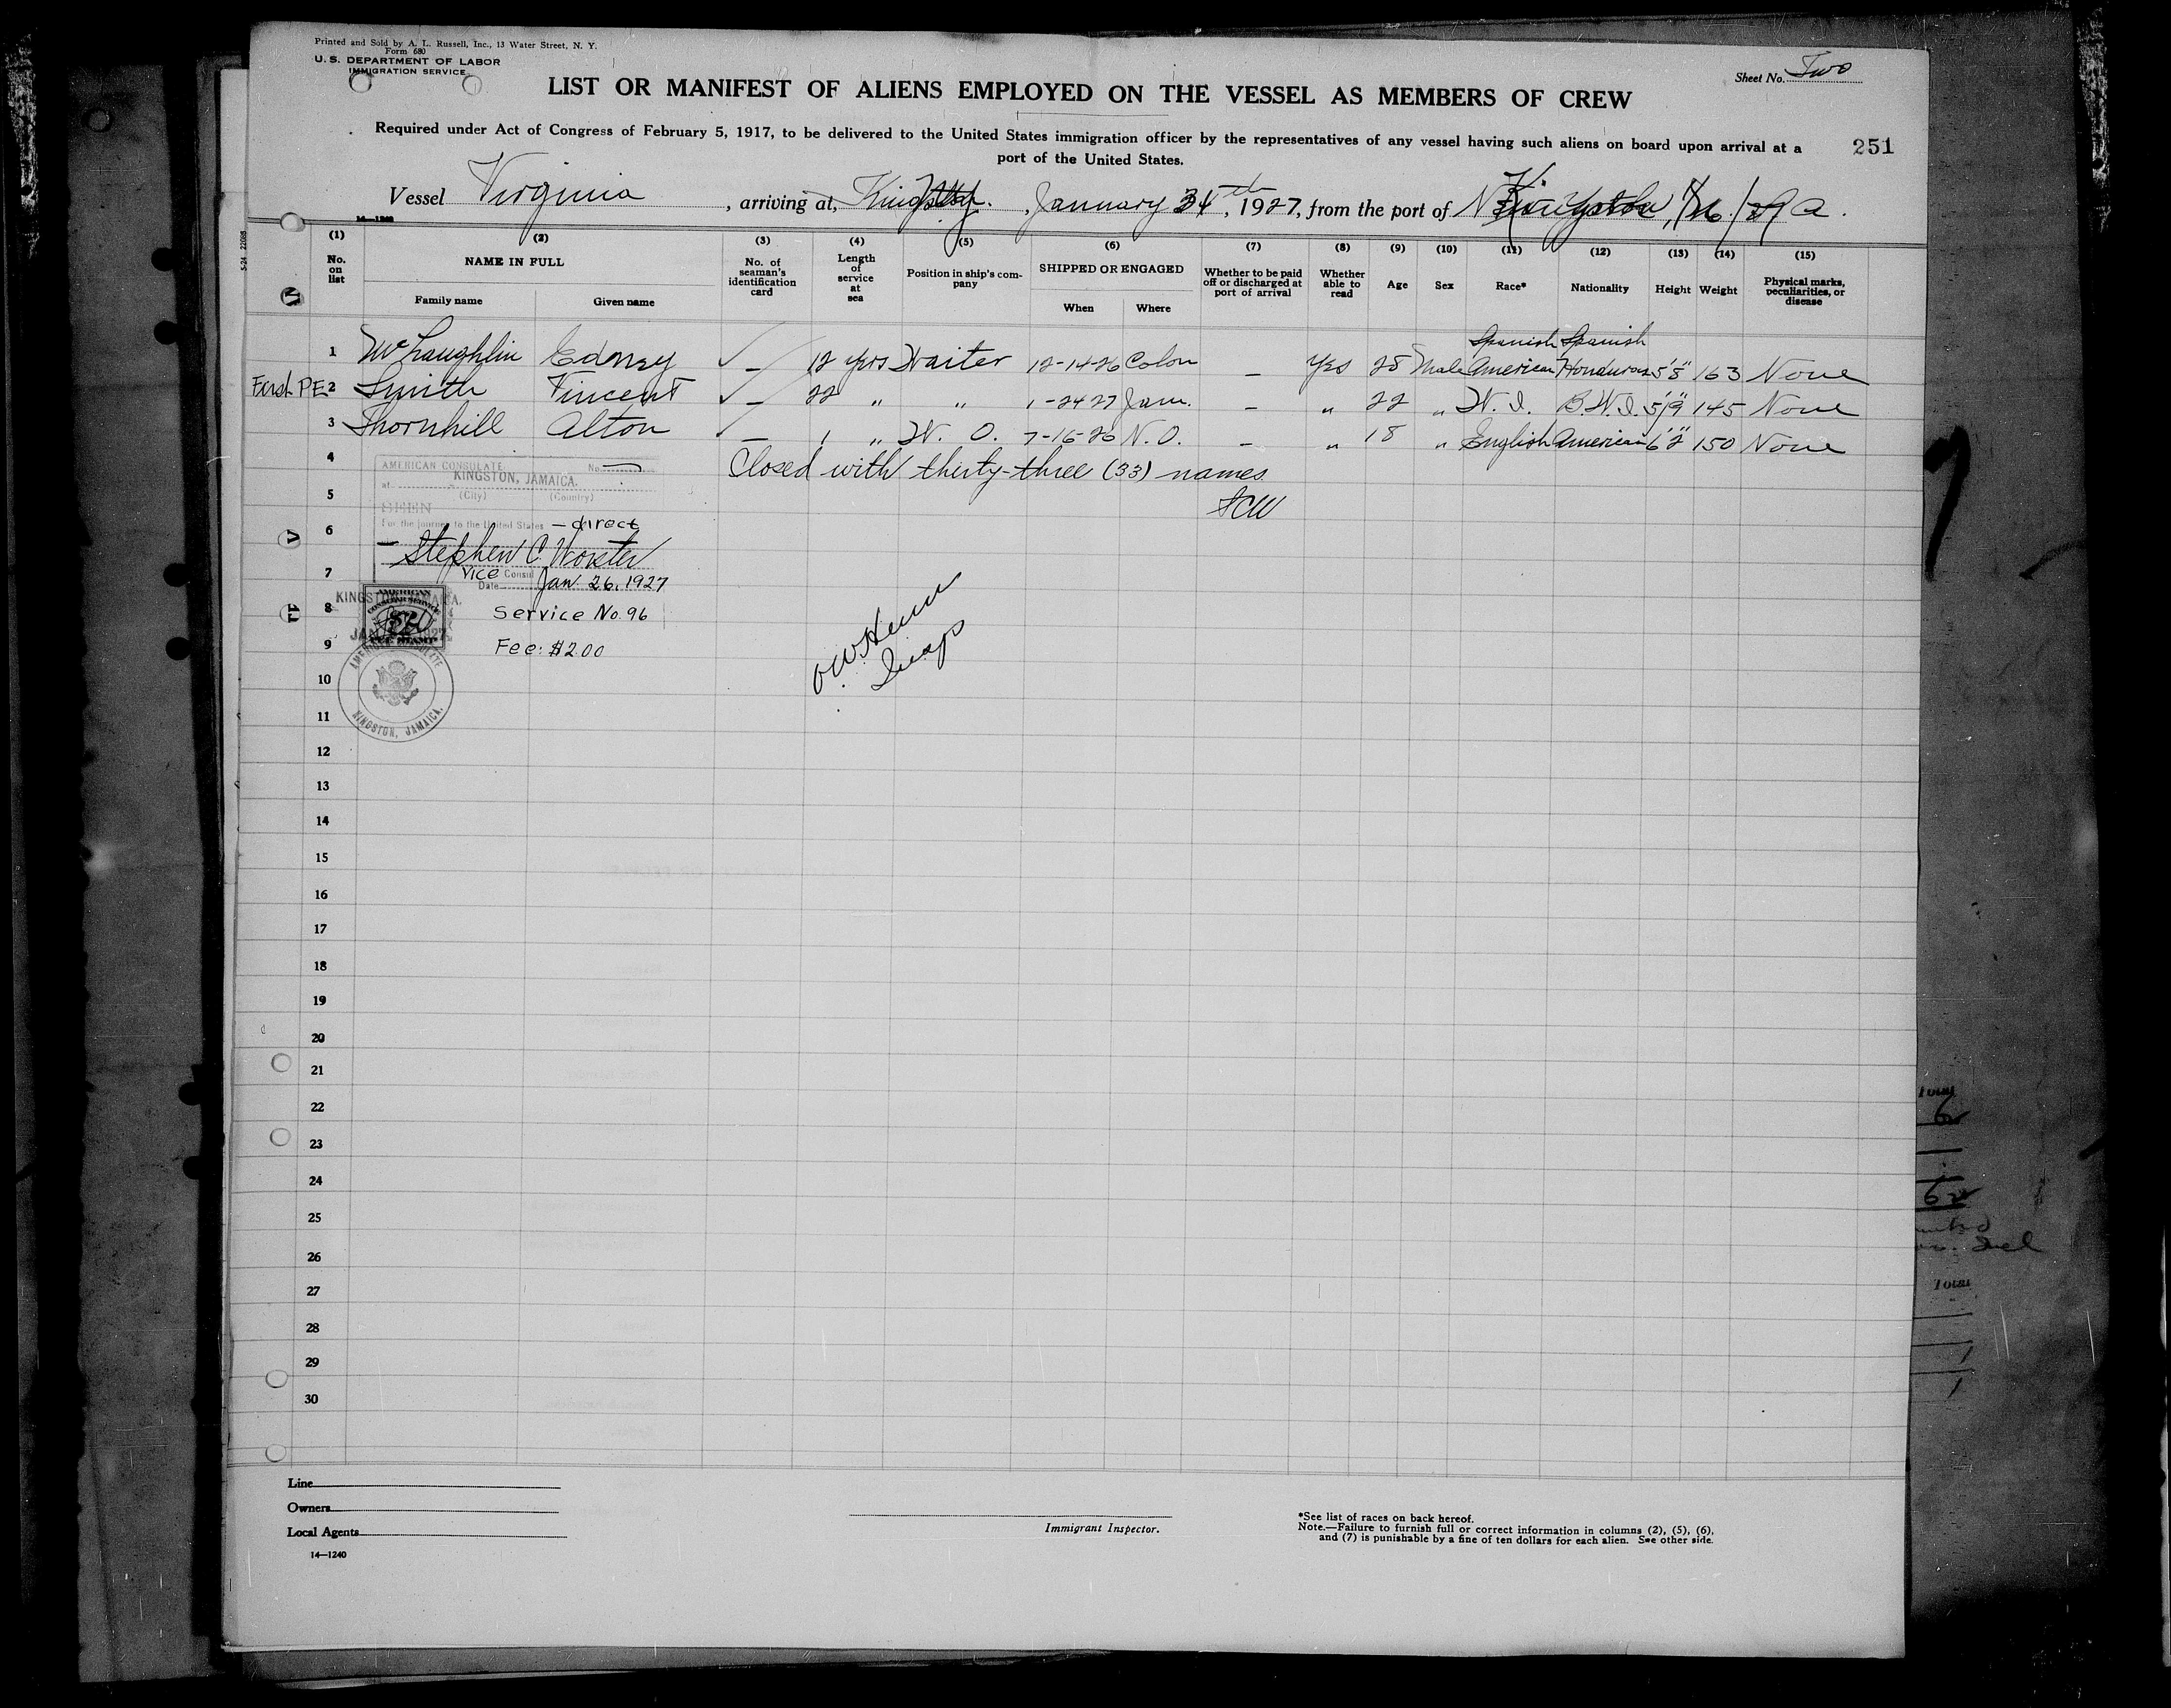 Printed and Sold by A. L. Russell, Inc., 13 Water Street, N. Y.
Form 680
U. S. DEPARTMENT OF LABOR
IMMIGRATION SERVICE
Sheet No. Two
LIST OR MANIFEST OF ALIENS EMPLOYED ON THE VESSEL AS MEMBERS OF CREW
Required under Act of Congress of February 5, 1917, to be delivered to the United States immigration officer by the representatives of any vessel having such aliens on board upon arrival at a
port of the United States.
251
Vessel Virginia, arriving at, January 1927, from the port of
14—1240
5-24 22085
(1) (2) (3) (4) (5) (6) (7) (8) (9) (10) (11) (12) (13) (14) (15)
No. on list NAME IN FULL No. of seaman's identification card Length of service at sea Position in ship's company SHIPPED OR ENGAGED Whether to be paid off or discharged at port of arrival Whether able to read Age Sex Race* Nationality Height Weight Physical marks, peculiarities, or disease
Family name Given name When Where
1 McLaughlin Edney ✓ — 12 yrs Waiter 12-14-26 Colon — Yes 28 Male Spanish American Spanish Honduras 5'8" 163 None
PE 2 Smith Vincent ✓ — 22 " " 1-24 27 Jam. — " 22 " W. I. B.W.I. 5'9" 145 None
3 Thornhill Alton ✓ — 1 " W. O. 7-16-26 N.O. — " 18 " English American 6'2" 150 None
4 Closed with thirty-three (33) names.
SCW
AMERICAN CONSULATE No.
at KINGSTON, JAMAICA.
(City) (Country)
5
SEEN
For the journey to the United States — direct
6
Stephen C. Worster
7
Vice Consul
Date Jan. 26, 1927
KINGSTON, JAMAICA.
AMERICAN
CONSULAR SERVICE
FEE STAMP
8
Service No. 96
9
Fee: $2.00
AMERICAN CONSULATE
KINGSTON, JAMAICA.
10
11
12
13
14
15
16
17
18
19
20
21
22
23
24
25
26
27
28
29
30
Line
Owners
Local Agents
14—1240
Immigrant Inspector.
*See list of races on back hereof.
Note.—Failure to furnish full or correct information in columns (2), (5), (6),
and (7) is punishable by a fine of ten dollars for each alien. See other side.
Total
Total